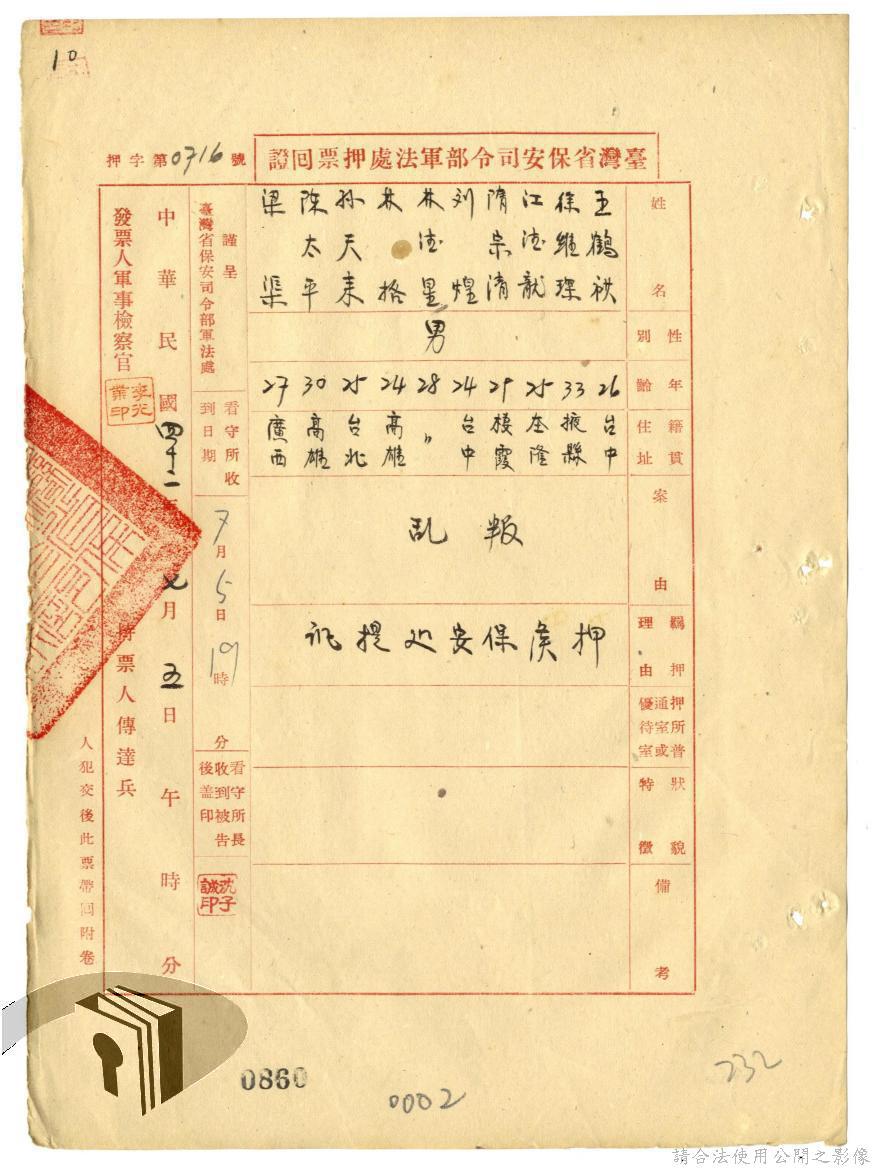 10
臺灣省保安司令部軍法處押票回證
押字第0716號
姓名
王鶴
徐維琛
江德龍
隋宗清
刘煌
林德星
林格
孙天来
陈太平
梁渠
性別
男
年齡
26
33
25
29
24
28
24
25
30
27
籍貫住址
台中
掖縣
基隆
棲霞
台中
〃
高雄
台北
高雄
廣西
案由
叛乱
羈押理由
押候保安処提訊
押所普通室或優待室
狀貌特徵
備考
謹呈
臺灣省保安司令部軍法處
看守所收到日期
7月5日19時 分
看守所長收到被告後盖印
沈子誠印
中華民國四十二年七月五日午時分
發票人軍事檢察官
李光業印
持票人傳達兵
人犯交後此票帶回附卷
0860
0002
232
請合法使用公開之影像